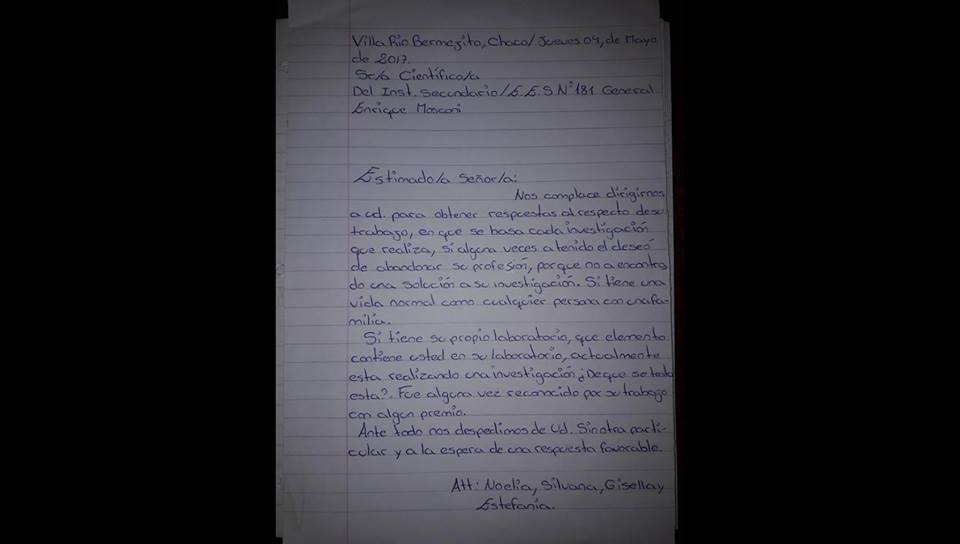 Villa Rio Bermejito, Chaco/Jueves 04, de Mayo
de 2017.
Sr/a Científico/a
Del Inst. Secundario/E.E.S N°181 General
Enrique Mosconi
Estimado/a Señor/a:
Nos complace dirigirnos
a ud. para obtener respuestas al respecto de su
trabajo, en que se basa cada investigación
que realiza, Si alguna veces a tenido el deseó
de abandonar su profesión, porque no a encontra
do una solución a su investigación. Si tiene una
vida normal como cualquier persona con una fa-
milia.
Si tiene su propio laboratorio, que elemento
contiene usted en su laboratorio, actualmente
esta realizando una investigación ¿De que se trata
esta?. Fue alguna vez reconocido por su trabajo
con algun premio.
Ante todo nos despedimos de Ud. Sin otra parti-
cular y a la espera de una respuesta favorable.
Att: Noelia, Silvana, Gisella y
Estefanía.